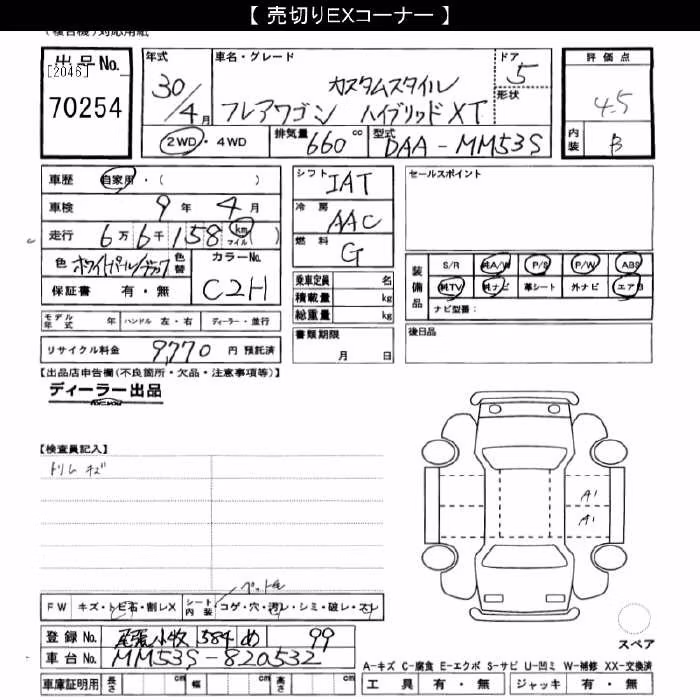 【 売切りEXコーナー 】
対応用紙
出品No. 年式 車名・グレード ドア 評価点
[2046] 30/4月 カスタムスタイル 5 4.5
70254 フレアワゴン ハイブリッドXT 形状
2WD・4WD 排気量 660 cc 型式 DAA-MM53S 内装 B
車歴 自家用・( ) シフト IAT セールスポイント
車検 9年 4月 冷房 AAC
走行 6万6千158 km マイル ( ) 燃料 G
色 ホワイトパール/ブラック 色替 カラーNo. C2H
装備品 S/R 純A/W P/S P/W ABS
純TV 純ナビ 革シート 外ナビ エアB
ナビ型番:
保証書 有・無 乗車定員 名
積載量 kg
総重量 kg
モデル年式 年 ハンドル 左・右 ディーラー・並行 書類期限 後日品
リサイクル料金 9,770 円 預託済 月 日
【出品店申告欄(不良箇所・欠品・注意事項等)】
ディーラー出品
【検査員記入】
トリム キズ
A1
A1
ペットノ毛
FW キズ・トビ石・割レX シート内装 コゲ・穴・汚レ・シミ・破レ・スレ
登録No. 尾張小牧 584 め 99
スペア
車台No. MM53S-820532
A-キズ C-腐食 E-エクボ S-サビ U-凹ミ W-補修 XX-交換済
車庫証明用 長さ cm 幅 cm 高さ cm 工具 有・無 ジャッキ 有・無